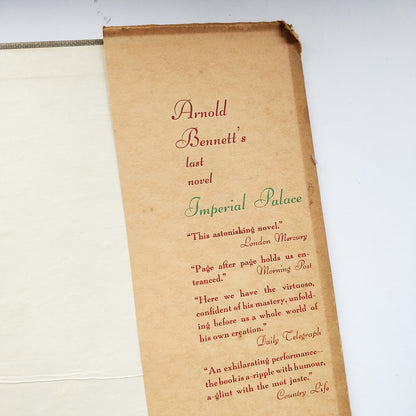 Arnold
Bennett's
last
novel
Imperial Palace
“This astonishing novel.”
London Mercury
“Page after page holds us en-
tranced.” Morning Post
“Here we have the virtuoso,
confident of his mastery, unfold-
ing before us a whole world of
his own creation.”
Daily Telegraph
“An exhilarating performance—
the book is a-ripple with humour,
a-glint with the mot juste.”
Country Life